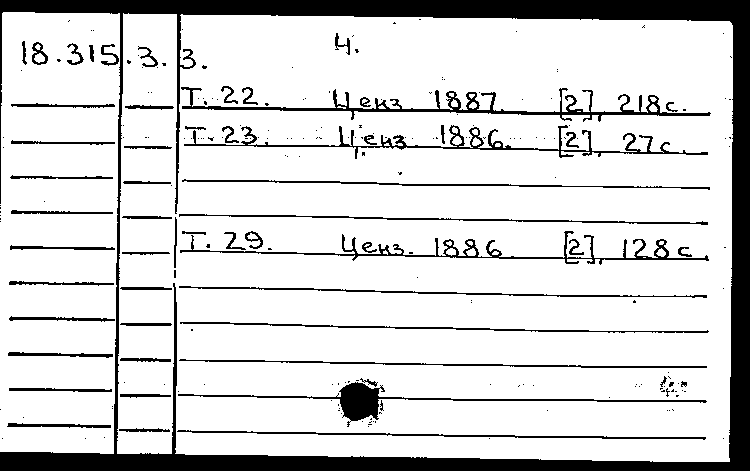 4.
18.315.3.3.
Т. 22. Ценз. 1887. [2], 218 с.
Т. 23. Ценз. 1886. [2], 27 с.
Т. 29. Ценз. 1886. [2], 128 с.